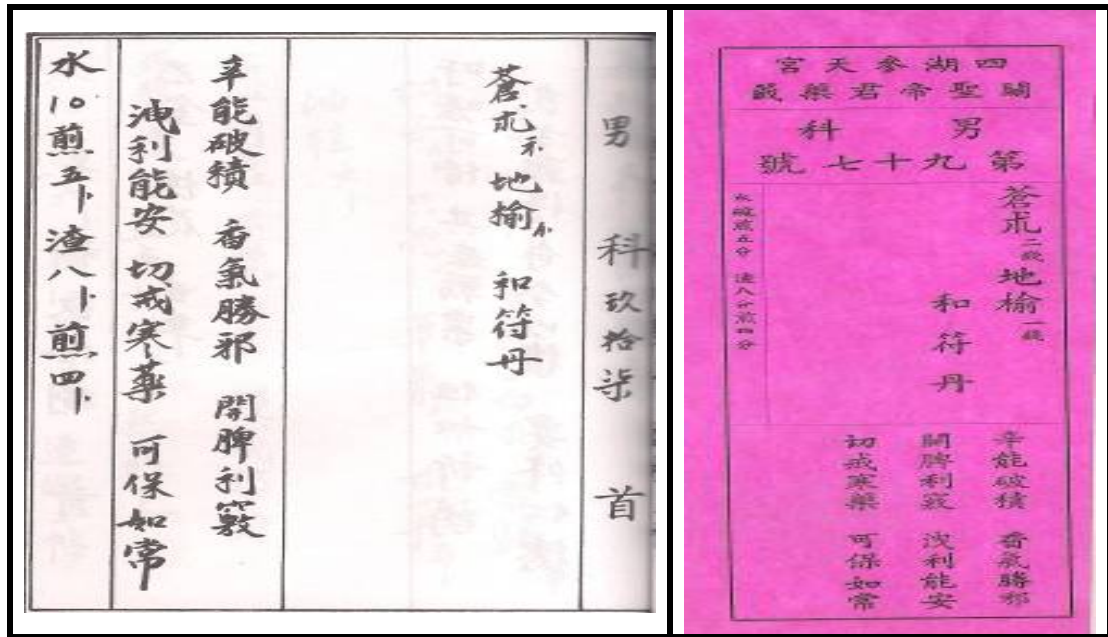 男科玖拾柒首
蒼朮 地榆 和符丹
辛能破積 香氣勝邪 開脾利竅
洩利能安 切戒寒藥 可保如常
水10煎五卜渣八卜煎四卜
四湖參天宮
關聖帝君藥籤
男科
第九十七號
蒼朮二錢地榆一錢
和符丹
水碗煎五分 渣八分煎四分
辛能破積 香氣勝邪
開脾利竅 洩利能安
切戒寒藥 可保如常